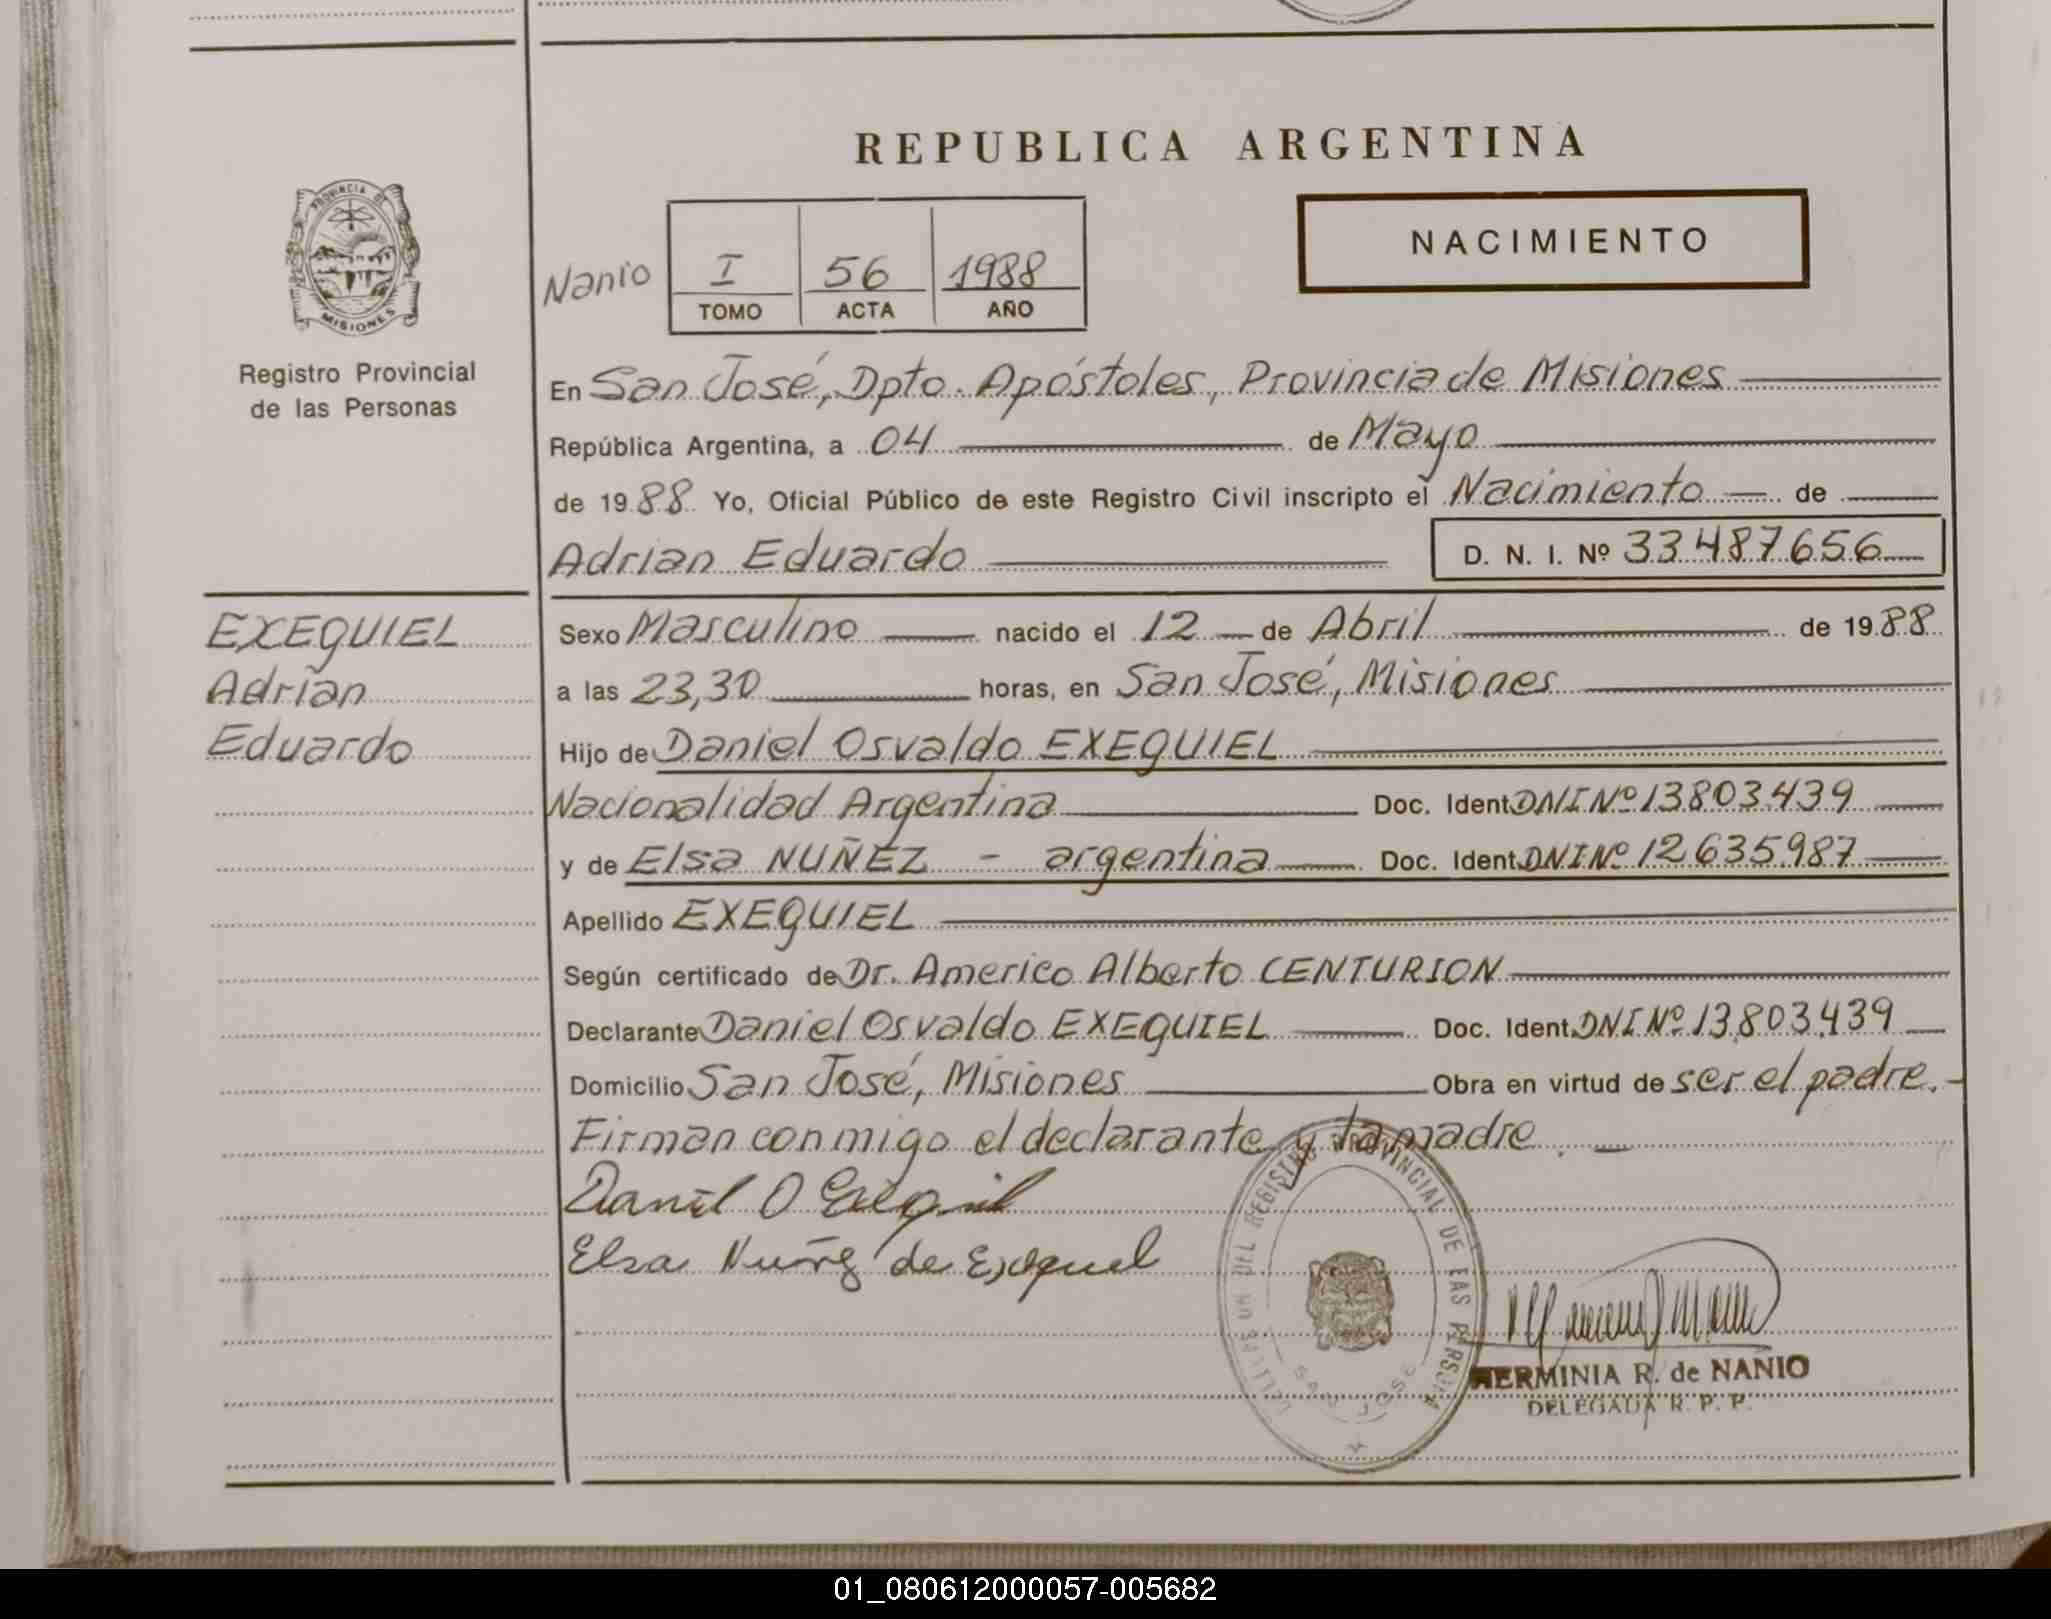 REPUBLICA ARGENTINA
PROVINCIA DE
MISIONES
Registro Provincial
de las Personas
NACIMIENTO
Nanio I 56 1988
TOMO ACTA AÑO
En San José, Dpto. Apóstoles, Provincia de Misiones
República Argentina, a 04 de Mayo
de 1988 Yo, Oficial Público de este Registro Civil inscripto el Nacimiento de
Adrian Eduardo D. N. I. Nº 33487656
EXEQUIEL
Adrian
Eduardo
Sexo Masculino nacido el 12 de Abril de 1988
a las 23,30 horas, en San José, Misiones
Hijo de Daniel Osvaldo EXEQUIEL
Nacionalidad Argentina Doc. Ident. DNI Nº 13803439
y de Elsa NUÑEZ - argentina Doc. Ident. DNI Nº 12635987
Apellido EXEQUIEL
Según certificado de Dr. Americo Alberto CENTURION
Declarante Daniel Osvaldo EXEQUIEL Doc. Ident. DNI Nº 13.803.439
Domicilio San José, Misiones Obra en virtud de ser el padre.-
Firman conmigo el declarante y la madre. -
Daniel O Exequiel
Elsa Nuñez de Exequiel
DEL REGISTRO PROVINCIAL DE LAS PERSONAS
SAN JOSE
HERMINIA R. de NANIO
DELEGADA R. P. P.
01_080612000057-005682